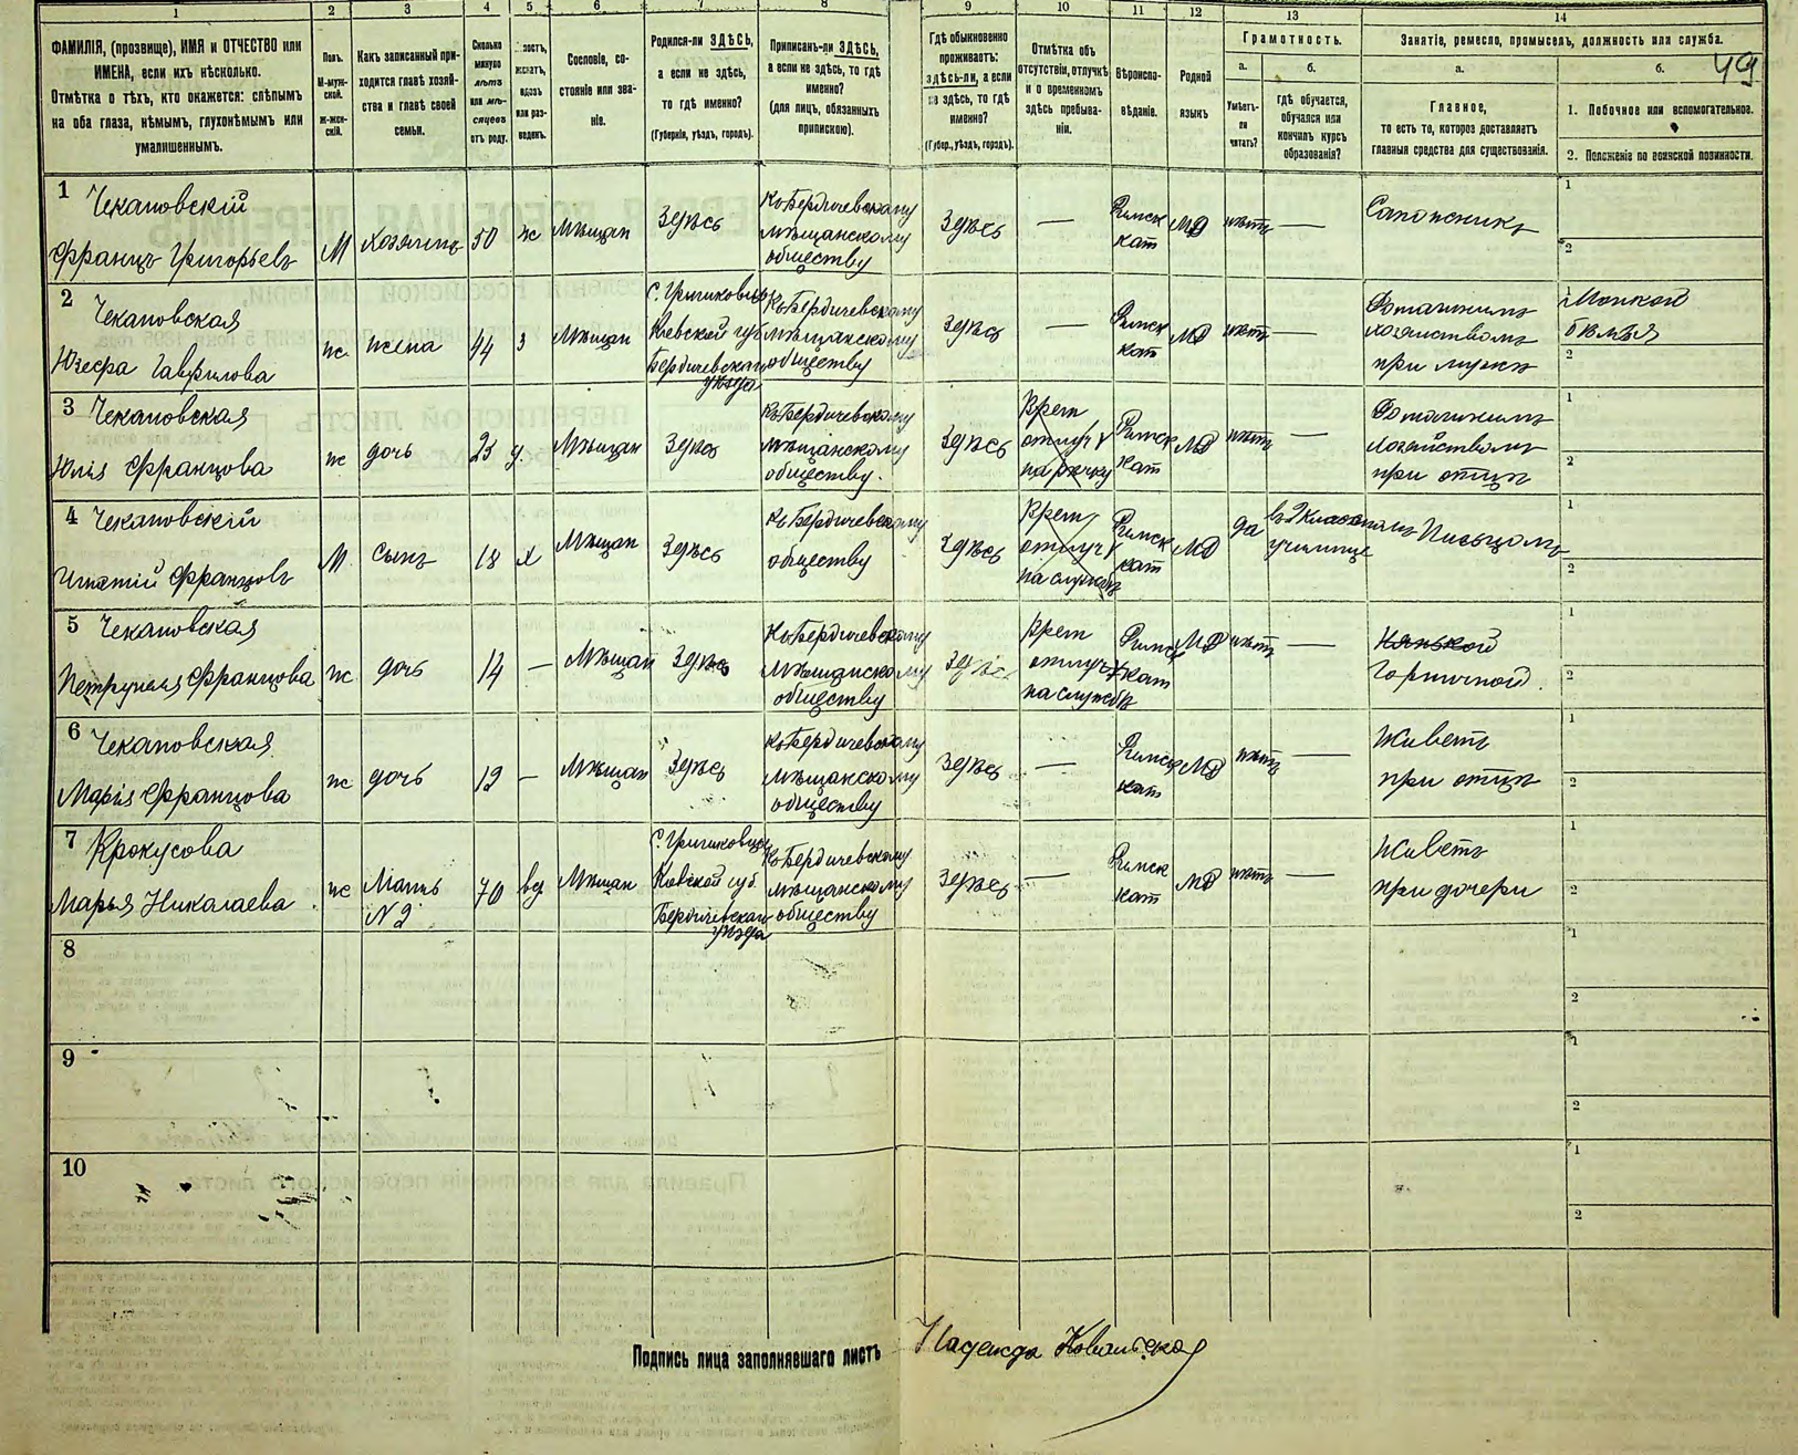 1 2 3 4 5 6 7 8 9 10 11 12 13 14
ФАМИЛІЯ, (прозвище), ИМЯ и ОТЧЕСТВО или
ИМЕНА, если ихъ нѣсколько.
Отмѣтка о тѣхъ, кто окажется: слѣпымъ
на оба глаза, нѣмымъ, глухонѣмымъ или
умалишеннымъ.
Полъ.
М-муж-
ской.
ж-жен-
скій.
Какъ записанный при-
ходится главѣ хозяй-
ства и главѣ своей
семьи.
Сколько
минуло
лѣтъ
или мѣ-
сяцевъ
отъ роду.
вдовъ
или раз-
веденъ.
Сословіе, со-
стояніе или зва-
ніе.
Родился-ли ЗДѢСЬ,
а если не здѣсь,
то гдѣ именно?
(Губернія, уѣздъ, городъ).
Приписанъ-ли ЗДѢСЬ,
а если не здѣсь, то гдѣ
именно?
(для лицъ, обязанныхъ
припискою).
Гдѣ обыкновенно
проживаетъ:
здѣсь-ли, а если
не здѣсь, то гдѣ
именно?
(Губер., уѣздъ, городъ).
Отмѣтка объ
отсутствіи, отлучкѣ
и о временномъ
здѣсь пребыва-
ніи.
Вѣроиспо-
вѣданіе.
Родной
языкъ
Грамотность.
а.
Умѣетъ-
ли
читать?
б.
гдѣ обучается,
обучался или
кончилъ курсъ
образованія?
Занятіе, ремесло, промыселъ, должность или служба.
а.
Главное,
то есть то, которое доставляетъ
главныя средства для существованія.
б.
49
1. Побочное или вспомогательное.
2. Положеніе по воинской повинности.
1 Чекановскій
Францъ Григорьевъ
М
Хозяинъ
50
ж
Мѣщан
Здѣсь
Къ Бердичевскому
мѣщанскому
обществу
Здѣсь
—
Римск
кат
нѣтъ
—
Сапожникъ
1
2
2 Чекановская
Юзефа Гаврилова
ж
жена
44
з
Мѣщан
Кіевской губ
Бердичевскаго
уѣзда
Къ Бердичевскому
мѣщанскому
обществу
Здѣсь
—
Римск
кат
нѣтъ
—
Домашнимъ
хозяйствомъ
при мужѣ
1
2
3 Чекановская
Юлія Францова
ж
дочь
23
Мѣщан
Здѣсь
Къ Бердичевскому
мѣщанскому
обществу.
Здѣсь
Врем
отлуч
Римск
кат
нѣтъ
—
Домашнимъ
хозяйствомъ
при отцѣ
1
2
4 Чекановскій
Игнатій Францовъ
М
Сынъ
18
х
Мѣщан
Здѣсь
Къ Бердичевскому
обществу
Здѣсь
Врем
отлуч
на службѣ
Римск
кат
да
училище
Писцомъ
1
2
5 Чекановская
Петрунеля Францова
ж
дочь
14
—
Мѣщан
Здѣсь
Къ Бердичевскому
мѣщанскому
обществу
Здѣсь
Врем
отлуч
на службѣ
Римск
кат
нѣтъ
—
Нянькой
Горничной
1
2
6 Чекановская
Марія Францова
ж
дочь
12
—
Мѣщан
Здѣсь
Къ Бердичевскому
мѣщанскому
обществу
Здѣсь
—
Римск
кат
нѣтъ
—
Живетъ
при отцѣ
1
2
7 Крокусова
Марья Николаева
ж
Мать
N 2
70
вд
Мѣщан
Кіевской губ.
Бердичевскаго
уѣзда
Къ Бердичевскому
мѣщанскому
обществу
Здѣсь
—
Римск
кат
нѣтъ
—
Живетъ
при дочери
1
2
8
1
2
9
1
2
10
1
2
Подпись лица заполнявшаго листъ Надежда Ковальская